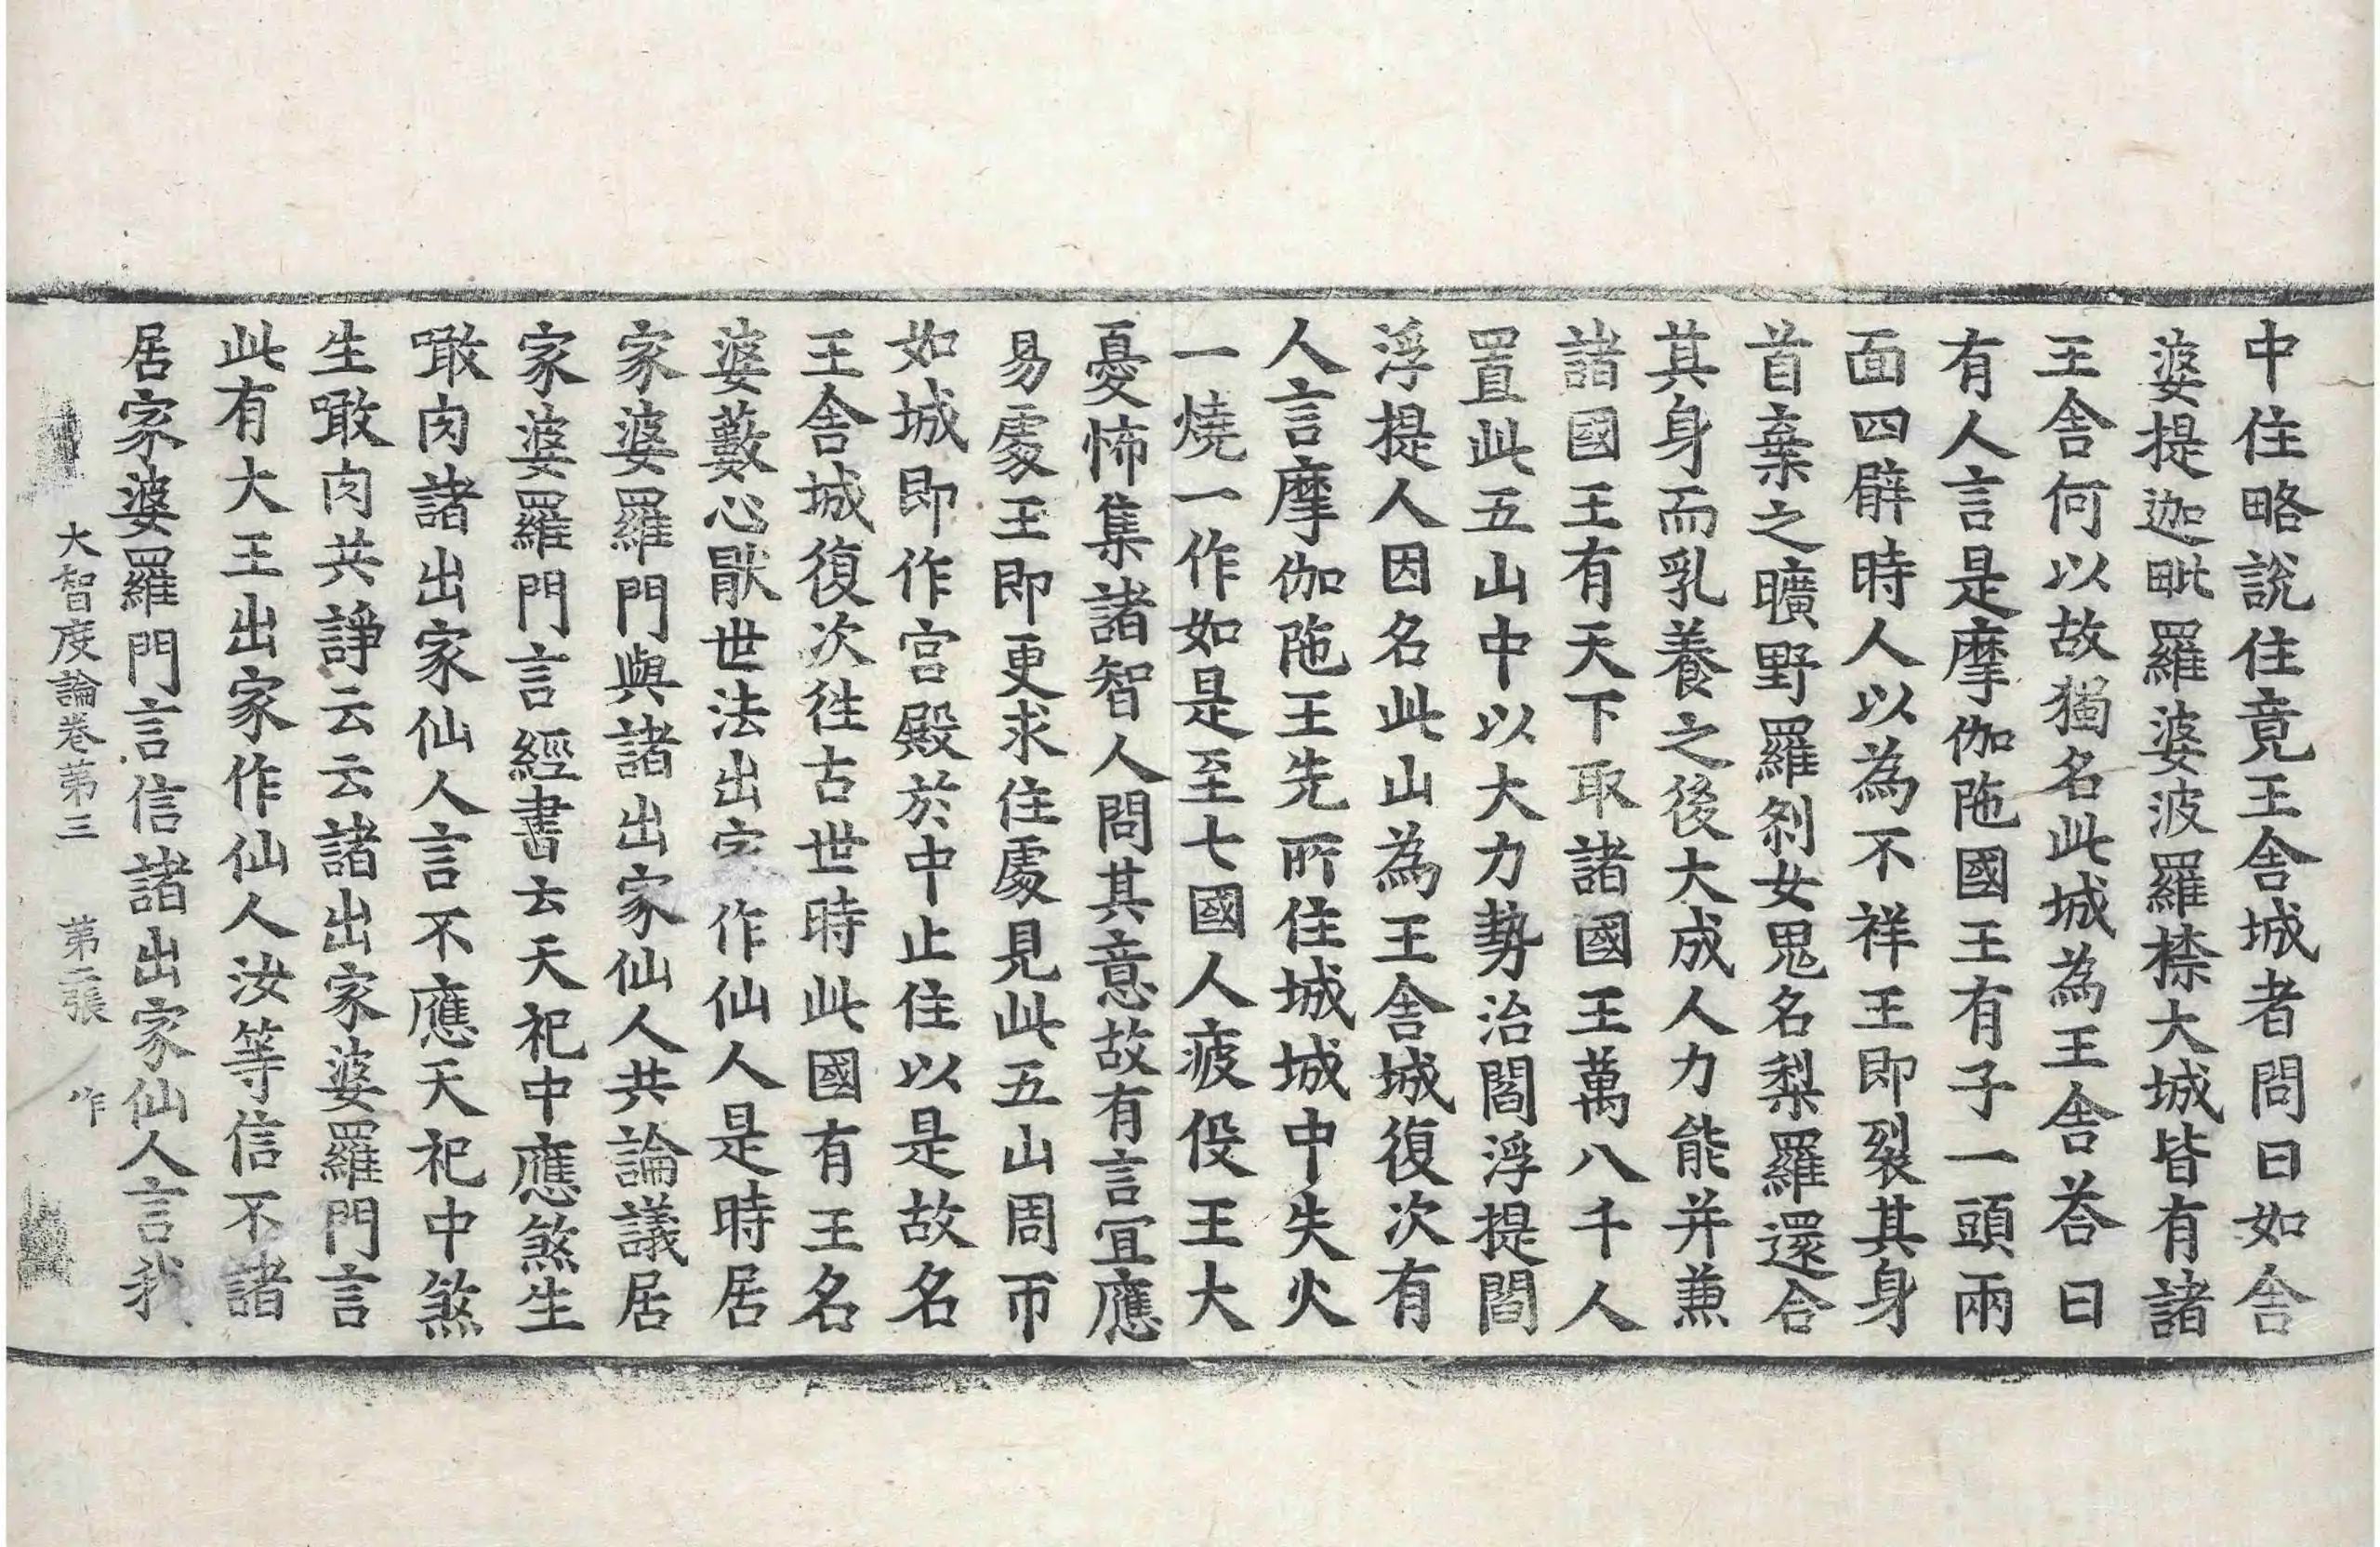 中住略說住竟王舎城者問曰如舎
婆提迦毗羅婆波羅㮈大城皆有諸
王舎何以故獨名此城為王舎荅曰
有人言是摩伽陁國王有子一頭兩
面四臂時人以為不祥王即裂其身
首棄之曠野羅刹女鬼名梨羅還合
其身而乳養之後大成人力能并兼
諸國王有天下取諸國王萬八千人
置此五山中以大力勢治閻浮提閻
浮提人因名此山為王舎城復次有
人言摩伽陁王先所住城城中失火
一燒一作如是至七國人疲伇王大
憂怖集諸智人問其意故有言冝應
易處王即更求住處見此五山周帀
如城即作宮殿於中止住以是故名
王舎城復次徃古世時此國有王名
婆藪心猒世法出家作仙人是時居
家婆羅門與諸出家仙人共論議居
家婆羅門言經書云天祀中應煞生
噉肉諸出家仙人言不應天祀中煞
生噉肉共諍云云諸出家婆羅門言
此有大王出家作仙人汝等信不諸
居家婆羅門言信諸出家仙人言我
大智度論卷第三 第二張 作